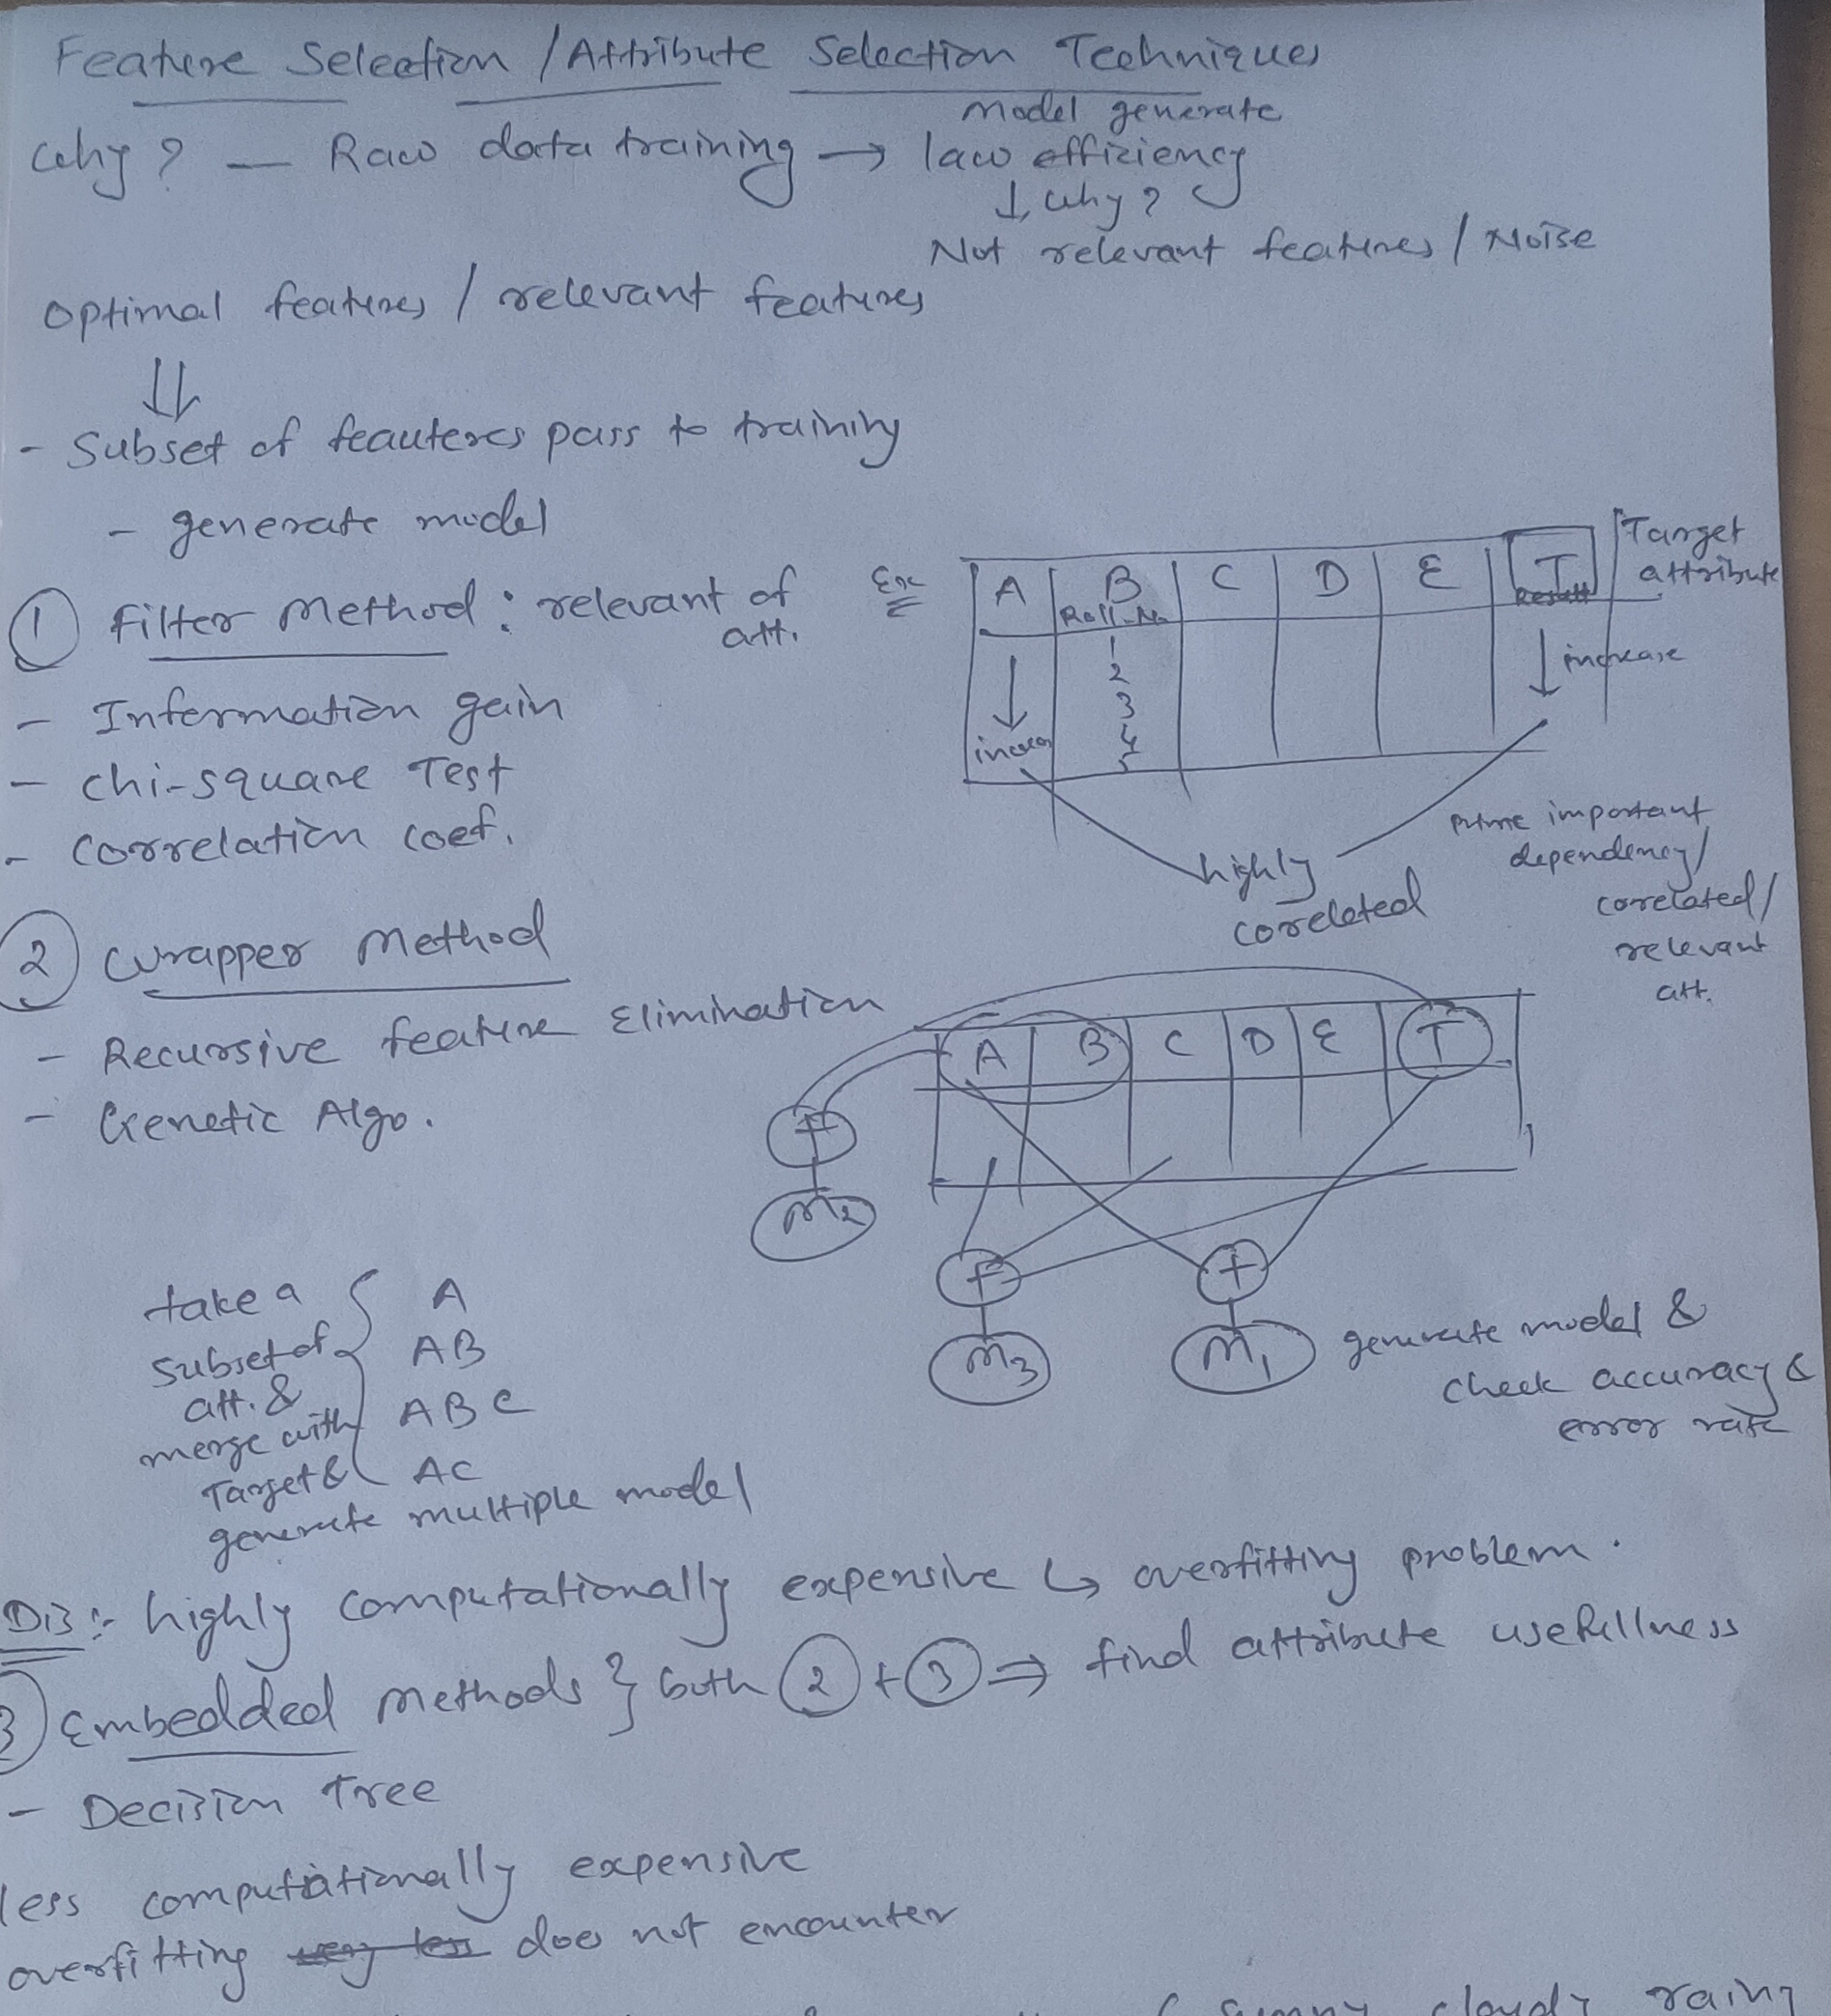 Feature Selection / Attribute Selection Techniques
Why? — Raw data training → low efficiency
model generate
↓ why?
Not relevant features / Noise
Optimal features / relevant features
⇓
- Subset of feauteres pass to training
- generate model
① Filter Method : relevant of
att.
- Information gain
- Chi-square Test
- Correlation coef.
Ex
A B C D E T
Roll-No Result
Target
attribute
1
2
3
4
5
↓ increase
↓ increase
highly
corelated
prime important
dependency/
correlated/
relevant
att.
② Wrapper Method
- Recursive feature Elimination
- Genetic Algo.
A B C D E T
+
M2
+
M3
+
M1
generate model &
check accuracy &
error rate
take a
subset of
att. &
merge with
Target &
generate multiple model
A
AB
ABC
AC
Dis :- highly computationally expensive ↳ overfitting problem.
③ Embedded Methods } both ② + ③ ⇒ find attribute usefullness
- Decision Tree
less computationally expensive
overfitting very less does not encounter
sunny cloudy rainy